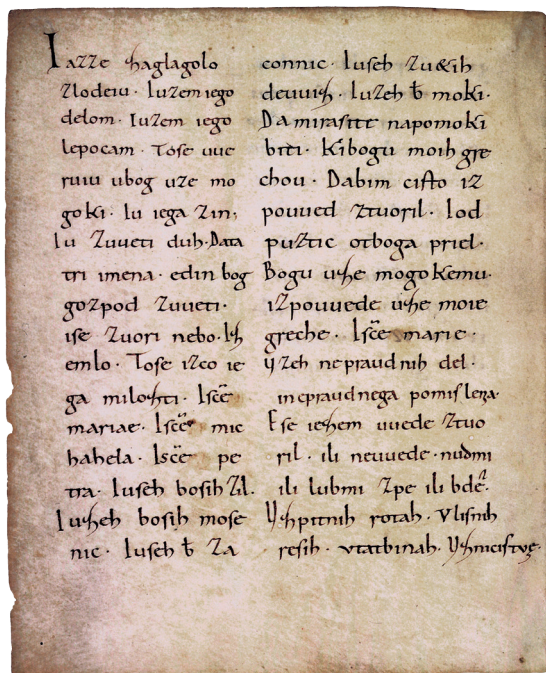 Iazze zaglagolo
zlodeiu. Iuzem iego
delom. Iuzem iego
lepocam. Tose uue
ruiu ubog uze mo
goki. Iu iega zin;
Iu zuueti duh. Data
tri imena. edin bog
gozpod zuueti.
ise zuori nebo. Iz
emlo. Tose izco ie
ga milozti. Iscē
mariae. Iscē mic
hahela. Iscē pe
tra. Iuseh bosih zil.
Iuzeh bosih mose
nic. Iuseh b̄ za
connic. Iuseh zu&ih
deuuiz. Iuzeh b̄ moki.
Da mirasite napomoki
biti. Kibogu moih gre
chou. Dabim cisto iz
pouued ztuoril. Iod
puztic otboga priel.
Bogu uze mogokemu.
izpouuede uze moie
greche. Iscē marie.
uzeh nepraudnih del.
inepraudnega pomislena.
Ese iezem uuede ztuo
ril. ili neuuede. nudmi
ili lubmi zpe ili bdē.
Uzpitnih rotah. Vlisnih
resih. vtatbinah. Uznicistve.